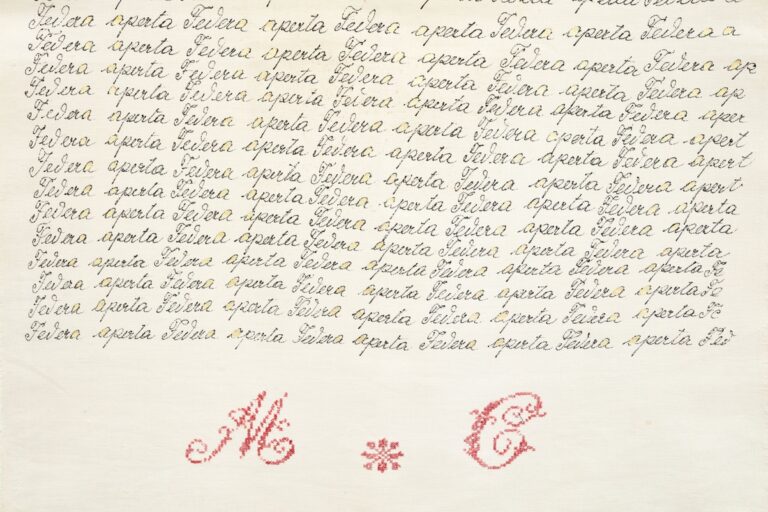 Federa aperta Federa aperta Federa aperta Federa aperta Federa a
Federa aperta Federa aperta Federa aperta Federa aperta Federa ap
Federa aperta Federa aperta Federa aperta Federa aperta Federa ap
Federa aperta Federa aperta Federa aperta Federa aperta Federa aper
Federa aperta Federa aperta Federa aperta Federa aperta Federa apert
Federa aperta Federa aperta Federa aperta Federa aperta Federa apert
Federa aperta Federa aperta Federa aperta Federa aperta Federa apert
Federa aperta Federa aperta Federa aperta Federa aperta Federa aperta
Federa aperta Federa aperta Federa aperta Federa aperta Federa aperta
Federa aperta Federa aperta Federa aperta Federa aperta Federa aperta
Federa aperta Federa aperta Federa aperta Federa aperta Federa aperta Fe
Federa aperta Federa aperta Federa aperta Federa aperta Federa aperta Fe
Federa aperta Federa aperta Federa aperta Federa aperta Federa aperta Fe
Federa aperta Federa aperta Federa aperta Federa aperta Federa aperta Fed
M * C